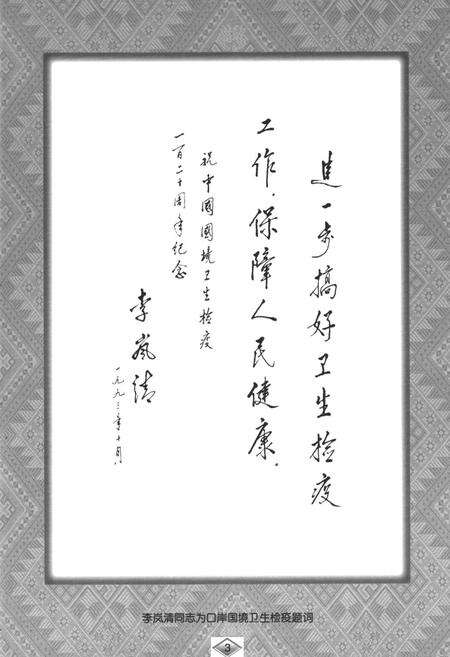 进一步搞好卫生检疫
工作，保障人民健康。
祝中国国境卫生检疫
一百二十周年纪念
李岚清
一九九三年十月.
李岚清同志为口岸国境卫生检疫题词
3